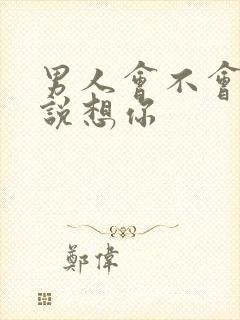 男人會不會
說想你
鄭偉